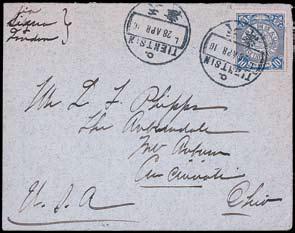 via
London
TIENTSIN
28 APR 10
TIENTSIN
APR 10
10
Mr L. J. Phipps
The Auburndale
Mt Auburn
Cincinnati
Ohio
U. S. A